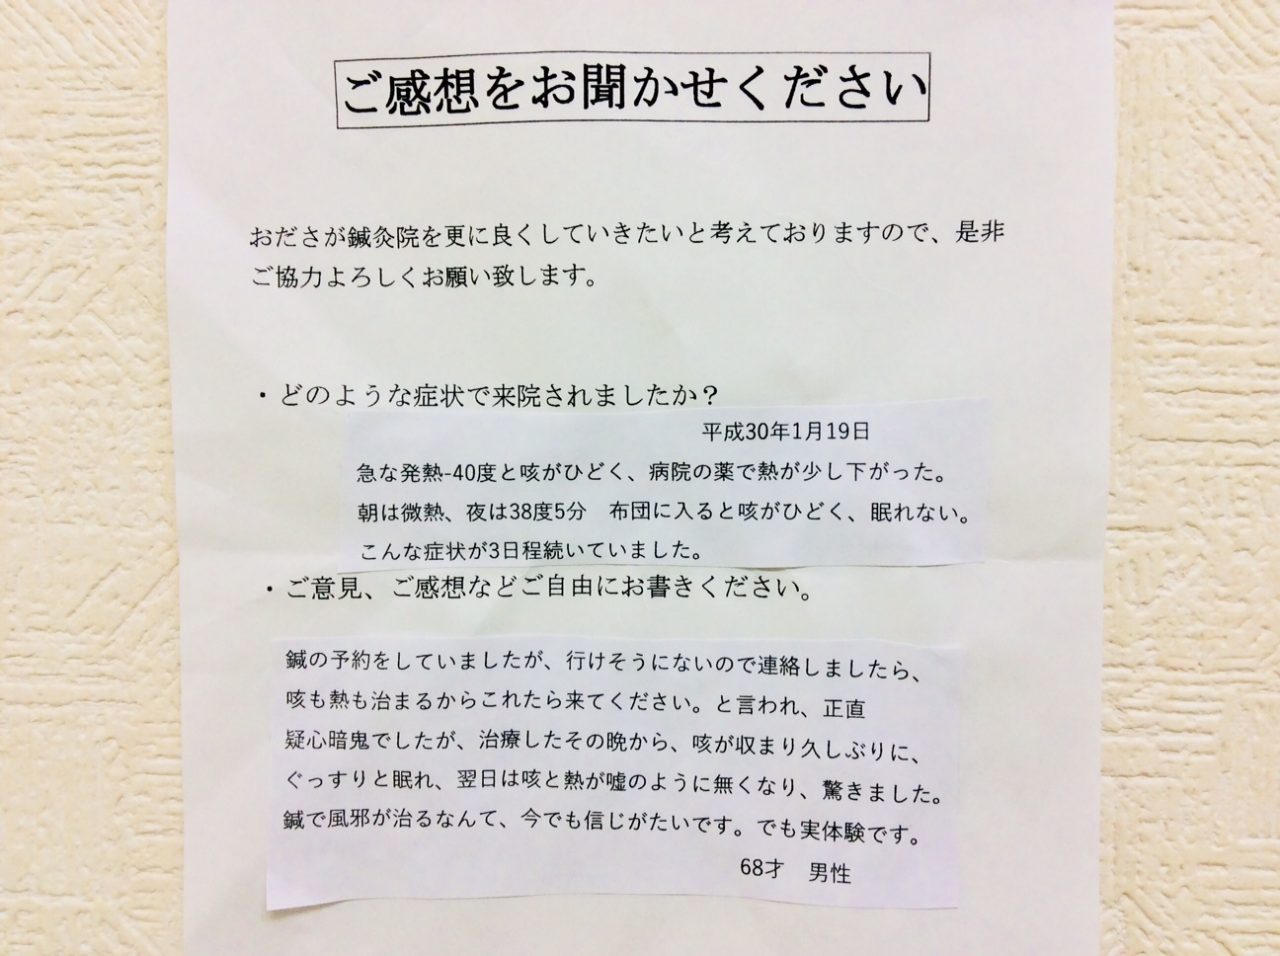 ご感想をお聞かせください
おださが鍼灸院を更に良くしていきたいと考えておりますので、是非
ご協力よろしくお願い致します。
・どのような症状で来院されましたか？
平成30年1月19日
急な発熱-40度と咳がひどく、病院の薬で熱が少し下がった。
朝は微熱、夜は38度5分　布団に入ると咳がひどく、眠れない。
こんな症状が3日程続いていました。
・ご意見、ご感想などご自由にお書きください。
鍼の予約をしていましたが、行けそうにないので連絡しましたら、
咳も熱も治まるからこれたら来てください。と言われ、正直
疑心暗鬼でしたが、治療したその晩から、咳が収まり久しぶりに、
ぐっすりと眠れ、翌日は咳と熱が嘘のように無くなり、驚きました。
鍼で風邪が治るなんて、今でも信じがたいです。でも実体験です。
68才　男性